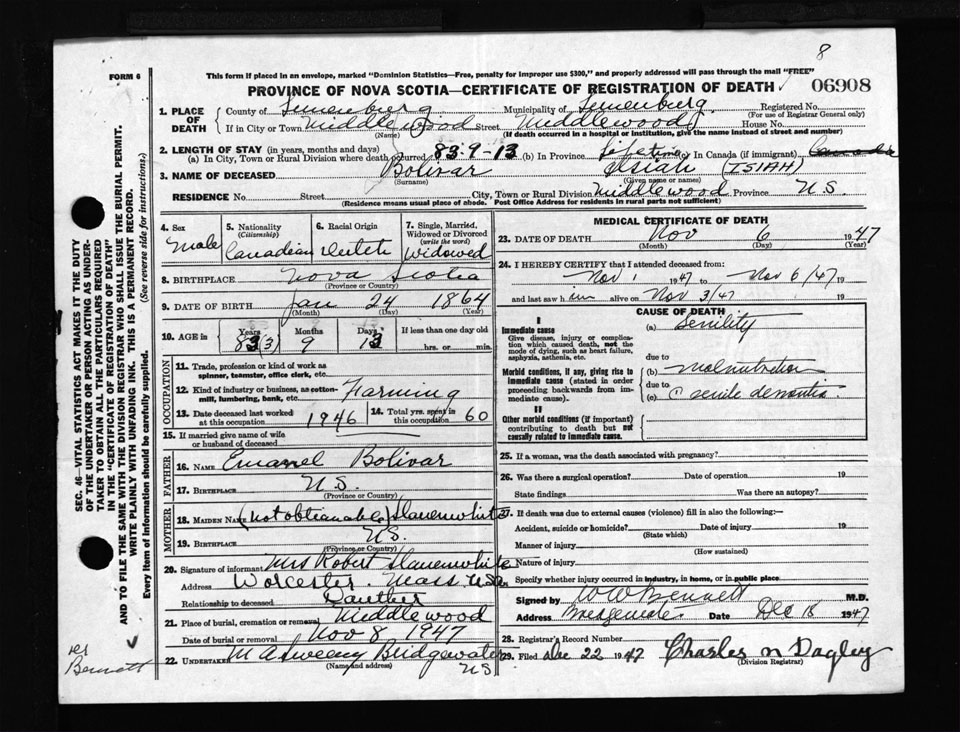 8
FORM 6
This form if placed in an envelope, marked "Dominion Statistics—Free, penalty for improper use $300," and properly addressed will pass through the mail "FREE"
PROVINCE OF NOVA SCOTIA—CERTIFICATE OF REGISTRATION OF DEATH 06908
1. PLACE OF DEATH County of Lunenburg Municipality of Lunenburg Registered No.
(For use of Registrar General only)
If in City or Town Middlewood Street Middlewood House No.
(Name) (If death occurred in a hospital or institution, give the name instead of street and number)
2. LENGTH OF STAY (in years, months and days)
(a) In City, Town or Rural Division where death occurred 83-9-13 (b) In Province Lifetime (c) In Canada (if immigrant) Canada
3. NAME OF DECEASED Bolivar Isiah (ISIAH)
(Surname) (Given name or names)
RESIDENCE No. Street City, Town or Rural Division Middlewood Province N.S.
(Residence means usual place of abode. Post Office Address for residents in rural parts not sufficient)
4. Sex Male
5. Nationality (Citizenship) Canadian
6. Racial Origin Dutch
7. Single, Married, Widowed or Divorced (write the word) Widowed
8. BIRTHPLACE Nova Scotia
(Province or Country)
9. DATE OF BIRTH Jan 24 1864
(Month) (Day) (Year)
10. AGE in Years 83 (3) Months 9 Days 13 If less than one day old
hrs. or min.
OCCUPATION
11. Trade, profession or kind of work as spinner, teamster, office clerk, etc.
12. Kind of industry or business, as cotton-mill, lumbering, bank, etc. Farming
13. Date deceased last worked at this occupation 1946 14. Total yrs. spent in this occupation 60
15. If married give name of wife or husband of deceased
FATHER
16. NAME Emanel Bolivar
17. BIRTHPLACE N.S.
(Province or Country)
MOTHER
18. MAIDEN NAME (not obtianable) Slauenwhite
19. BIRTHPLACE N.S.
(Province or Country)
20. Signature of informant Mrs Robert Slauenwhite
Address Worcester. Mass. USA
Relationship to deceased Dauther
21. Place of burial, cremation or removal Middlewood
Date of burial or removal Nov 8 1947
22. UNDERTAKER M A Sweeny Bridgewater
(Name and address) N S
MEDICAL CERTIFICATE OF DEATH
23. DATE OF DEATH Nov 6 1947
(Month) (Day) (Year)
24. I HEREBY CERTIFY that I attended deceased from:
Nov 1 1947 to Nov 6/47 19
and last saw him alive on Nov 3/47 19
CAUSE OF DEATH
I
Immediate cause (a) Senility
Give disease, injury or complication which caused death, not the mode of dying, such as heart failure, asphyxia, asthenia, etc.
due to
Morbid conditions, if any, giving rise to immediate cause (stated in order proceeding backwards from immediate cause). (b) Malnutrition
due to
(c) senile dementia
II
Other morbid conditions (if important) contributing to death but not causally related to immediate cause.
25. If a woman, was the death associated with pregnancy?
26. Was there a surgical operation? Date of operation 19
State findings Was there an autopsy?
27. If death was due to external causes (violence) fill in also the following:—
Accident, suicide or homicide? Date of injury 19
(State which)
Manner of injury
(How sustained)
Nature of injury
Specify whether injury occurred in industry, in home, or in public place
Signed by W W Bennett M.D.
Address Bridgewater Date Dec 18 1947
28. Registrar's Record Number
29. Filed Dec 22 1947 Charles N Dagley
(Division Registrar)
SEC. 46—VITAL STATISTICS ACT MAKES IT THE DUTY
OF THE UNDERTAKER OR PERSON ACTING AS UNDER-
TAKER TO OBTAIN ALL THE PARTICULARS REQUIRED
IN THE "CERTIFICATE OF REGISTRATION OF DEATH"
AND TO FILE THE SAME WITH THE DIVISION REGISTRAR WHO SHALL ISSUE THE BURIAL PERMIT.
WRITE PLAINLY WITH UNFADING INK. THIS IS A PERMANENT RECORD.
Every item of information should be carefully supplied. (See reverse side for instructions.)
Bennett